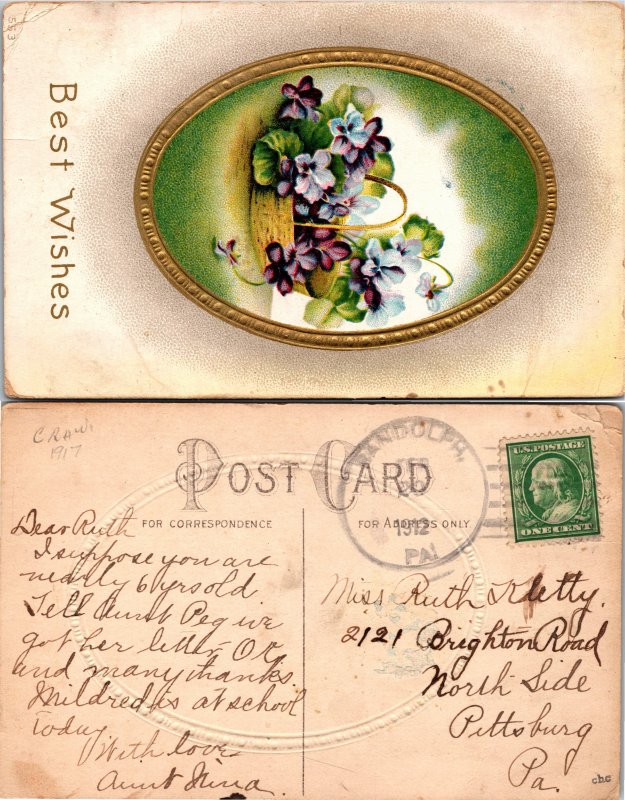 553
Best Wishes
CRAW.
1917
POST CARD
FOR CORRESPONDENCE
FOR ADDRESS ONLY
RANDOLPH,
1912
PA.
U.S. POSTAGE
ONE CENT
Dear Ruth
I suppose you are
nearly 6 yrs old
Tell Aunt Peg we
got her letter O.K
and many thanks.
Mildred is at school
today
With love
Aunt Nina.
Miss Ruth
2121 Brighton Road
North Side
Pittsburg
Pa.
cbc